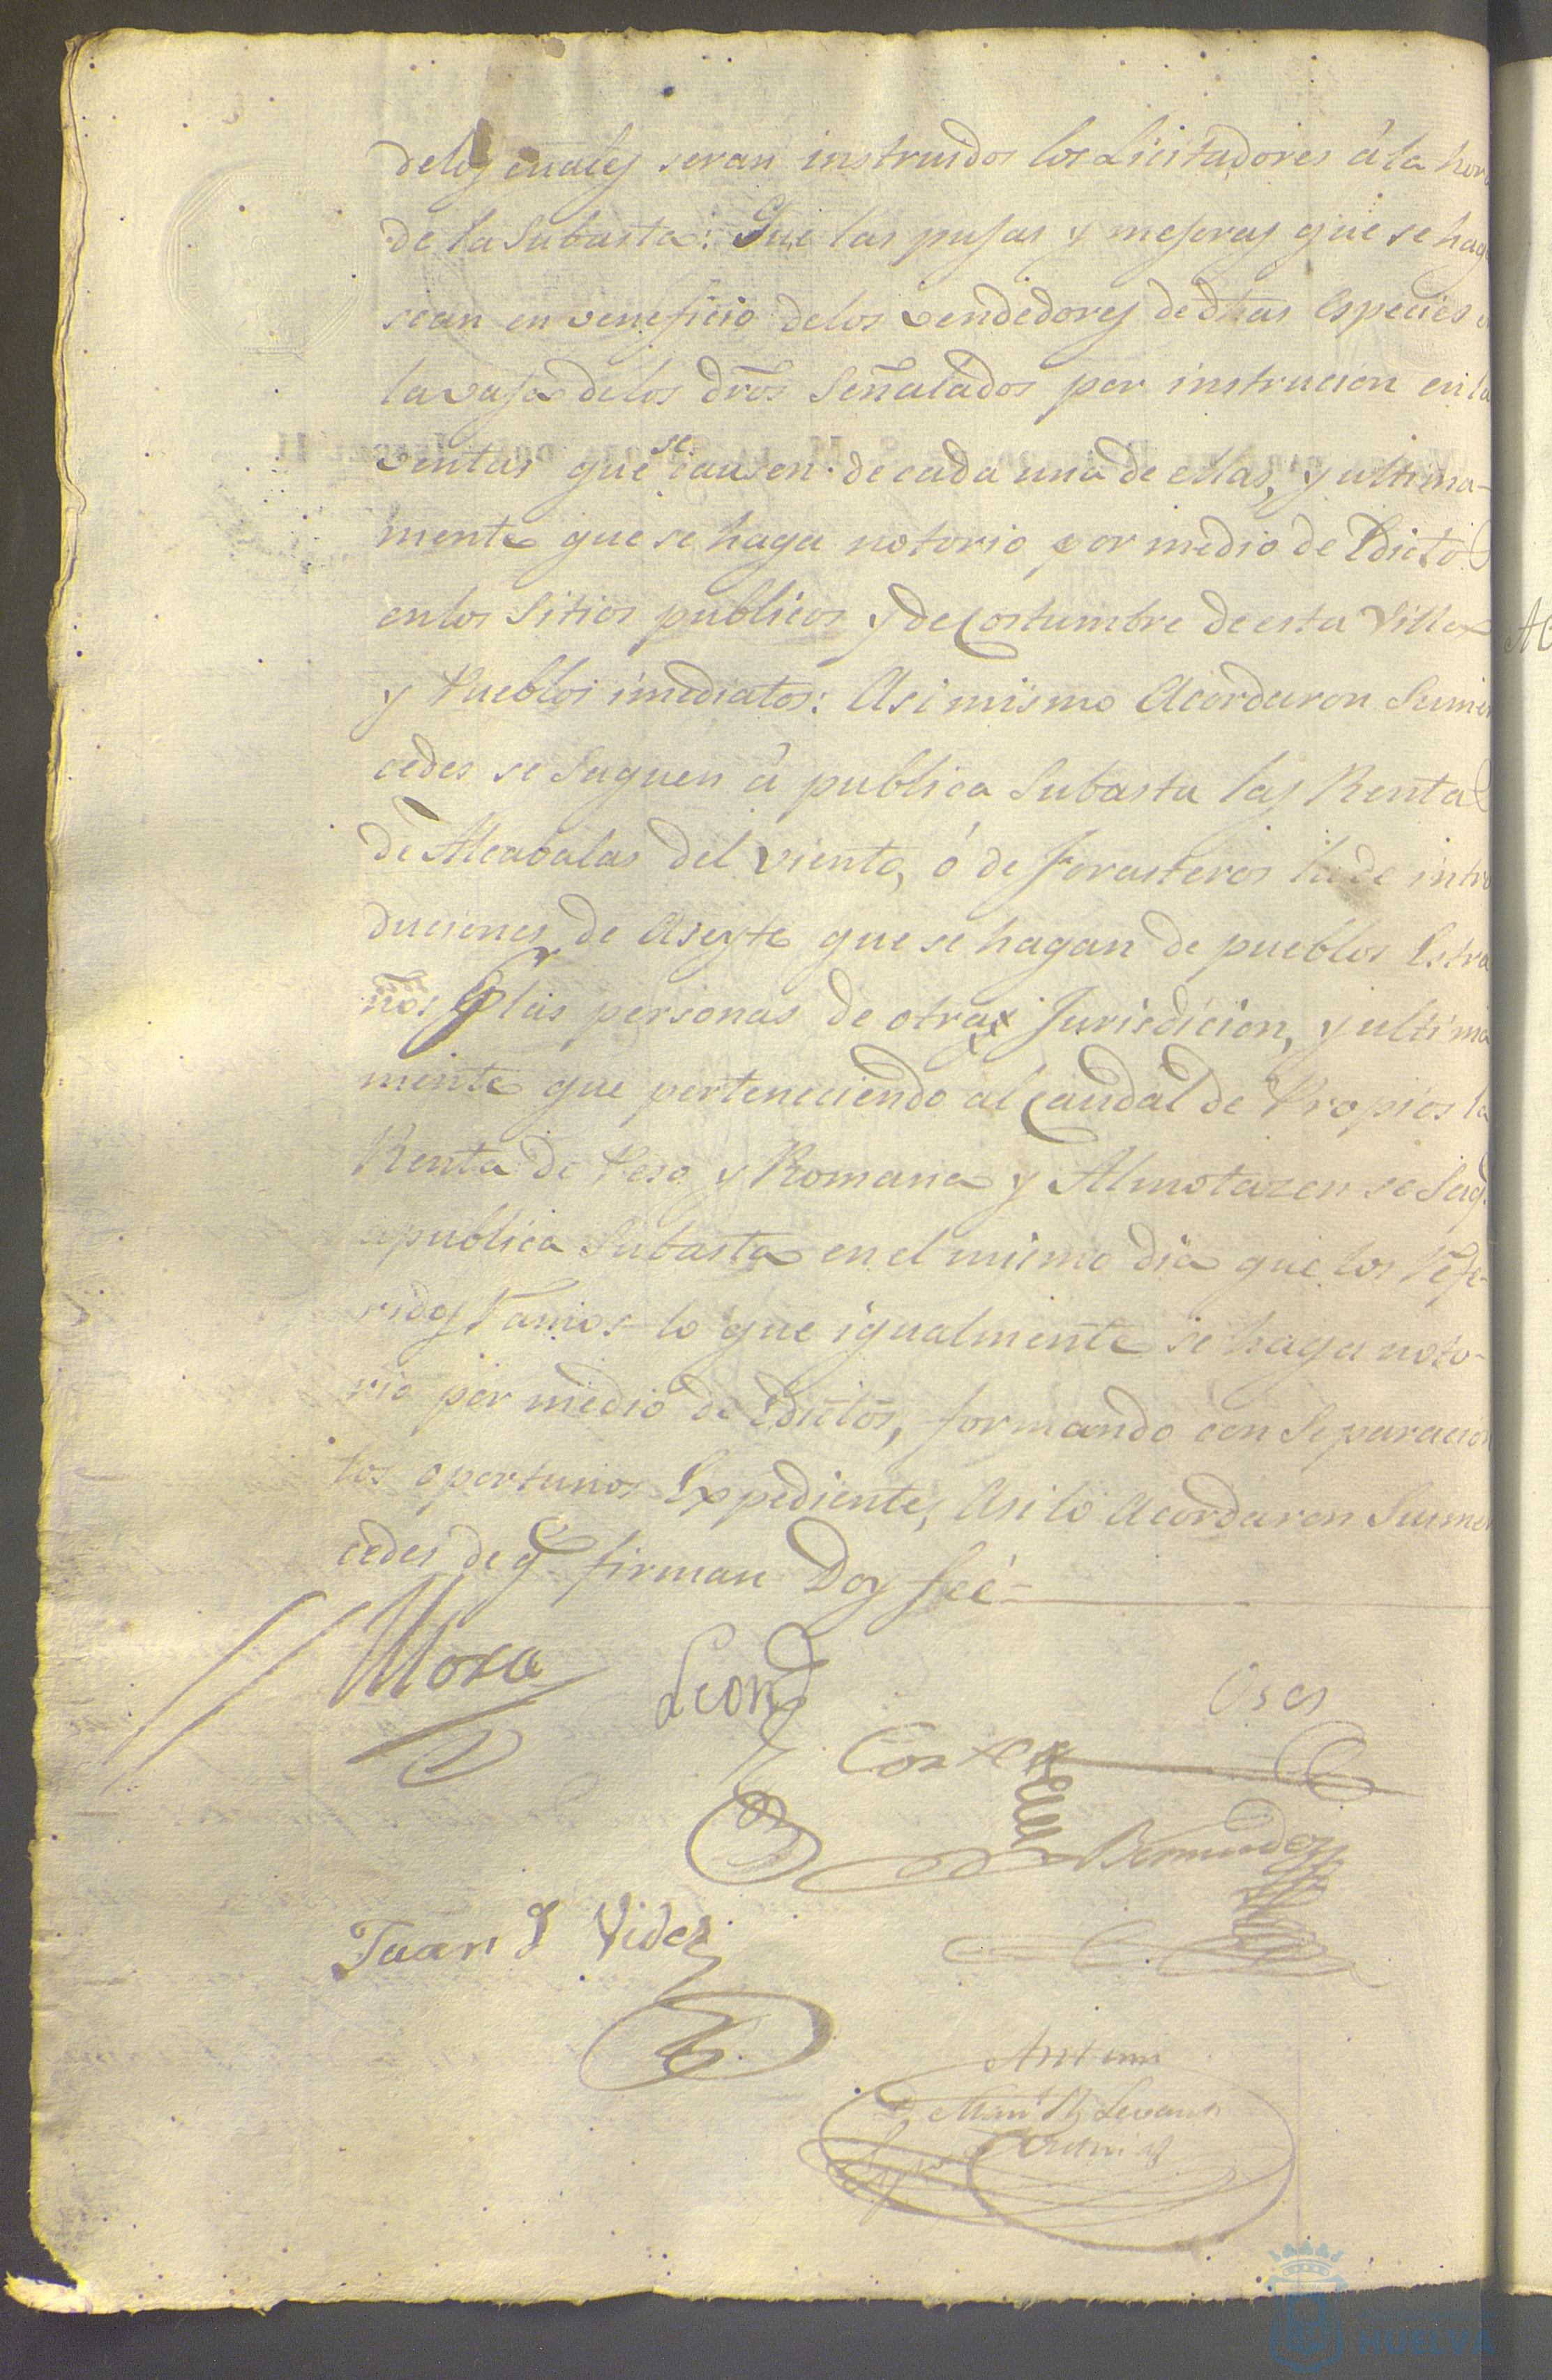 delos cuales seran instruidos los Licitadores á la hora
de la Subasta: Que las pujas y mejoras que se hag
sean en veneficio delos vendedores de dhas especies
la vaja delos dros Señalados por instrucion en la
ventas que se causen de cada una de ellas, y ultima-
mente que se haga notorio por medio de Edictos
en los Sitios publicos y de Costumbre de esta Villa
y Pueblos imediatos: Asi mismo Acordaron Sumer
cedes se Saquen á publica Subasta las Rentas
de Alcabalas del viento, ó de forasteros la de intro
duciones de Aseyte que se hagan de pueblos Estra
ños las personas de otra Jurisdicion, y ultima
mente que perteneciendo al Caudal de Propios la
Renta de Peso y Romana y Almotazen se Saq
a publica Subasta en el mismo dia que los refe-
ridos ramos lo que igualmente se haga noto-
rio por medio de Edictos, formando con Separacion
los oportunos Expedientes, Asi lo Acordaron Sumer
cedes de q.e firman Doy feé-
Mora Leon Oses
Cortes
Bermudez
Juan J Vides
Ante mi
HUELVA